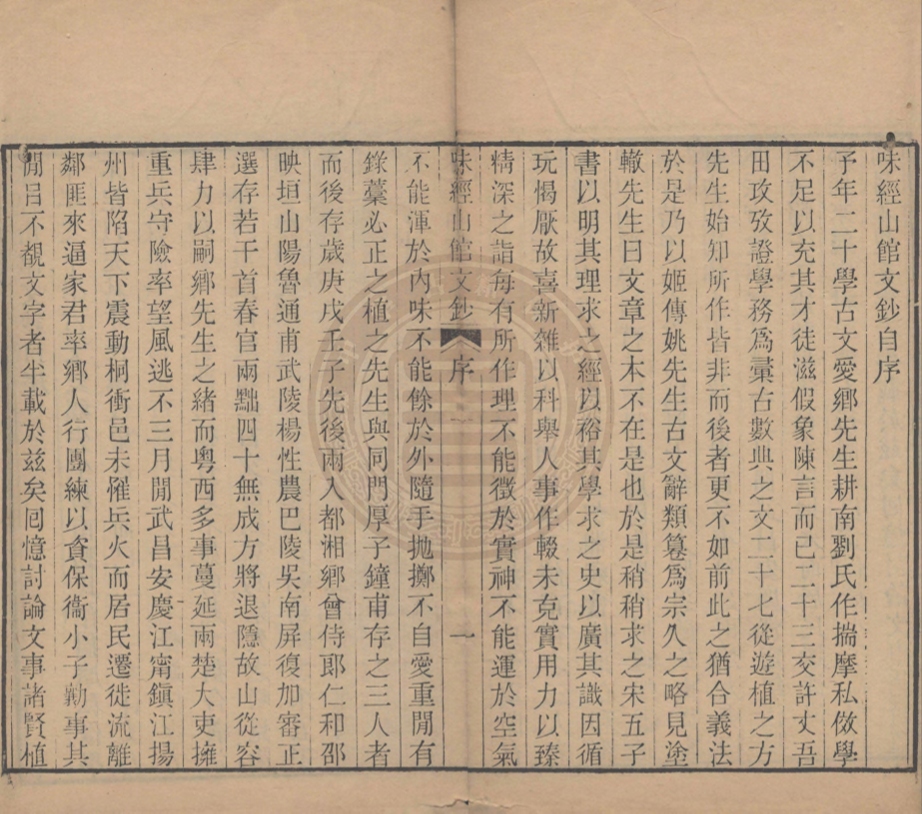 味經山館文鈔自序
予年二十學古文愛鄉先生耕南劉氏作揣摩私倣學
不足以充其才徒滋假象陳言而已二十三交許丈吾
田攻攷證學務為彙古數典之文二十七從遊植之方
先生始知所作皆非而後者更不如前此之猶合義法
於是乃以姬傳姚先生古文辭類篹為宗久之略見塗
轍先生曰文章之本不在是也於是稍稍求之宋五子
書以明其理求之經以裕其學求之史以廣其識因循
玩愒厭故喜新雜以科舉人事作輟未克實用力以臻
精深之詣每有所作理不能徵於實神不能運於空氣
味經山館文鈔 序 一
不能渾於內味不能餘於外隨手拋擲不自愛重閒有
錄藁必正之植之先生與同門厚子鐘甫存之三人者
而後存歲庚戌壬子先後兩入都湘鄉曾侍郎仁和邵
映垣山陽魯通甫武陵楊性農巴陵吳南屏復加審正
選存若干首春官兩黜四十無成方將退隱故山從容
肆力以嗣鄉先生之緒而粵西多事蔓延兩楚大吏擁
重兵守險率望風逃不三月閒武昌安慶江甯鎮江揚
州皆陷天下震動桐衝邑未罹兵火而居民遷徙流離
鄰匪來逼家君率鄉人行團練以資保衞小子勷事其
閒目不覩文字者半載於茲矣囘憶討論文事諸賢植